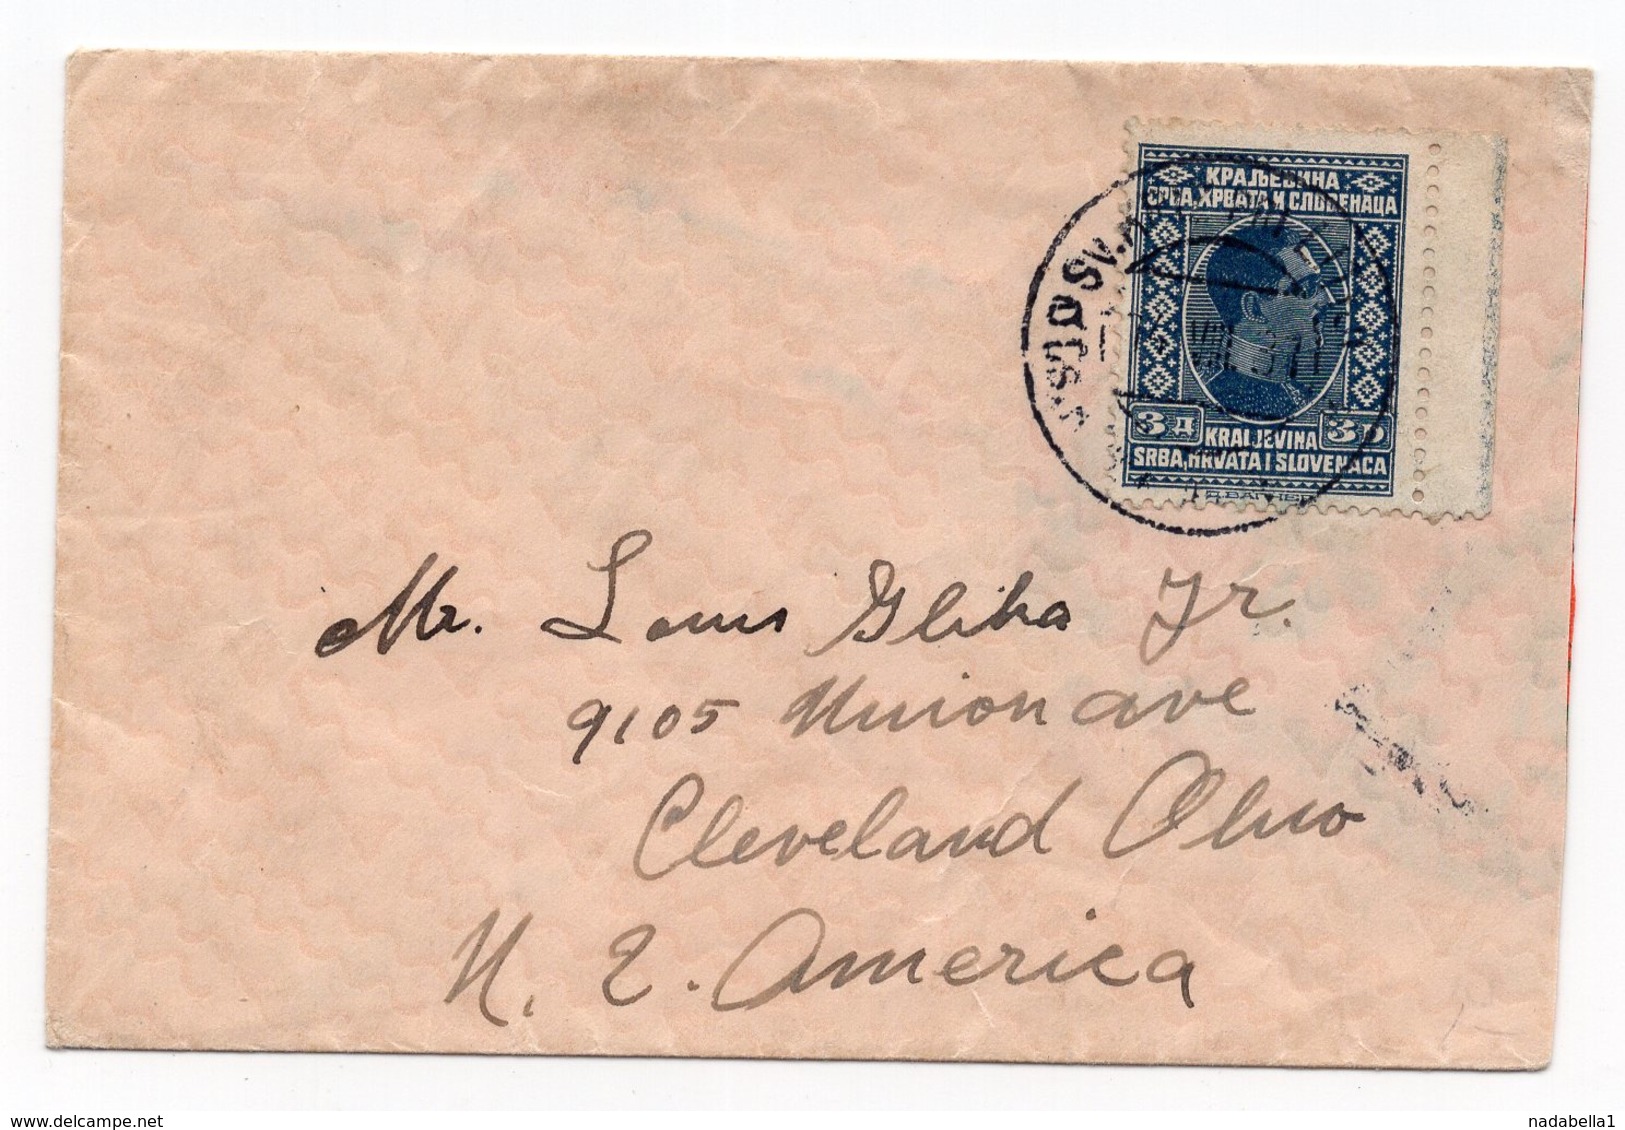 КРАЉЕВИНА
СРБА, ХРВАТА И СЛОВЕНАЦА
3Д 3D
KRALJEVINA
SRBA, HRVATA I SLOVENACA
SV.
VIII. 31
Mr. Louis Glika Jr.
9105 Union ave
Cleveland Ohio
N. E. America
delcampe.net
nadabella1